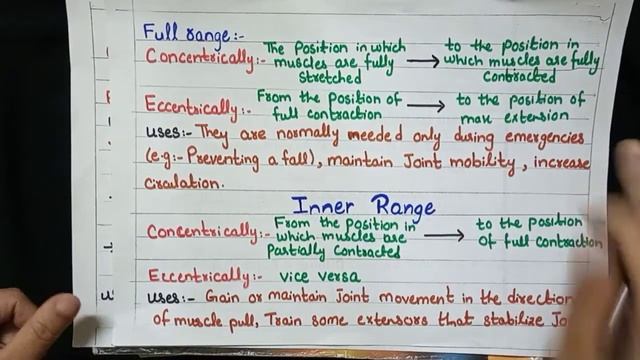 Full range:-
Concentrically:- The Position in which muscles are fully stretched → to the position in which muscles are fully contracted
Eccentrically:- From the Position of full contraction → to the position of max extension
uses:- They are normally needed only during emergencies
(e.g:- Preventing a fall), maintain Joint mobility, increase
circulation.
Inner Range
Concentrically:- From the Position in which muscles are Partially Contracted → to the position of full contraction
Eccentrically:- vice versa
uses:- Gain or maintain Joint movement in the direction
of muscle pull, Train some extensors that stabilize Jo